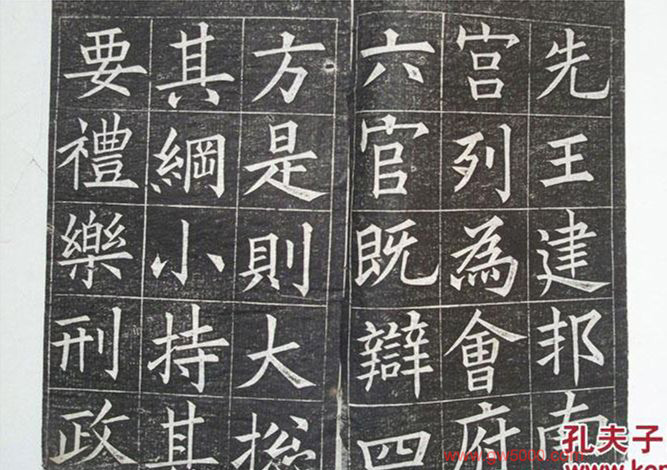 先王建邦南
宫列為會府
六官既辯四
方是則大揔
其綱小持其
要禮樂刑政
孔夫子
www.gw5000.com